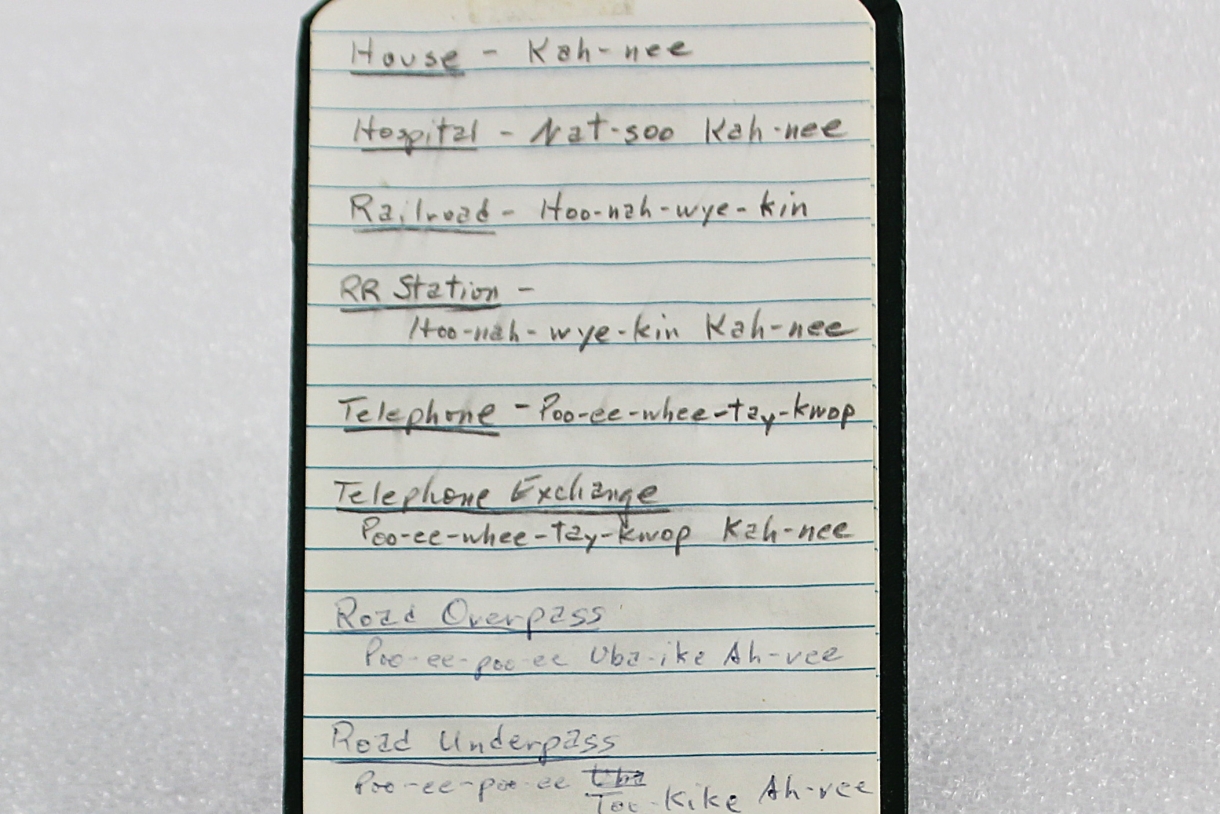 House - Kah-nee
Hospital - Nat-soo Kah-nee
Railroad - Hoo-nah-wye-kin
RR Station -
Hoo-nah-wye-kin Kah-nee
Telephone - Poo-ee-whee-tay-kwop
Telephone Exchange
Poo-ee-whee-tay-kwop Kah-nee
Road Overpass
Poo-ee-poo-ee Uba-ike Ah-vee
Road Underpass
Poo-ee-poo-ee Uba
Too-Kike Ah-vee